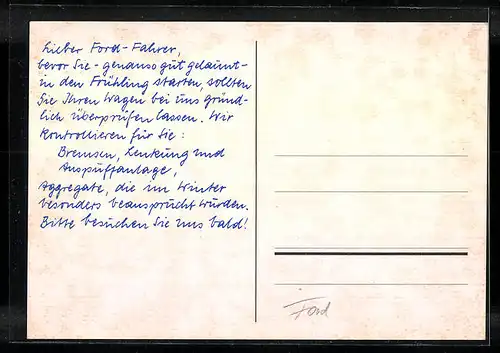 Lieber Ford-Fahrer,
bevor Sie - genauso gut gelaunt -
in den Frühling starten, sollten
Sie Ihren Wagen bei uns gründ-
lich überprüfen lassen. Wir
kontrollieren für Sie:
Bremsen, Lenkung und
Auspuffanlage,
Aggregate, die im Winter
besonders beansprucht wurden.
Bitte besuchen Sie uns bald!
Ford